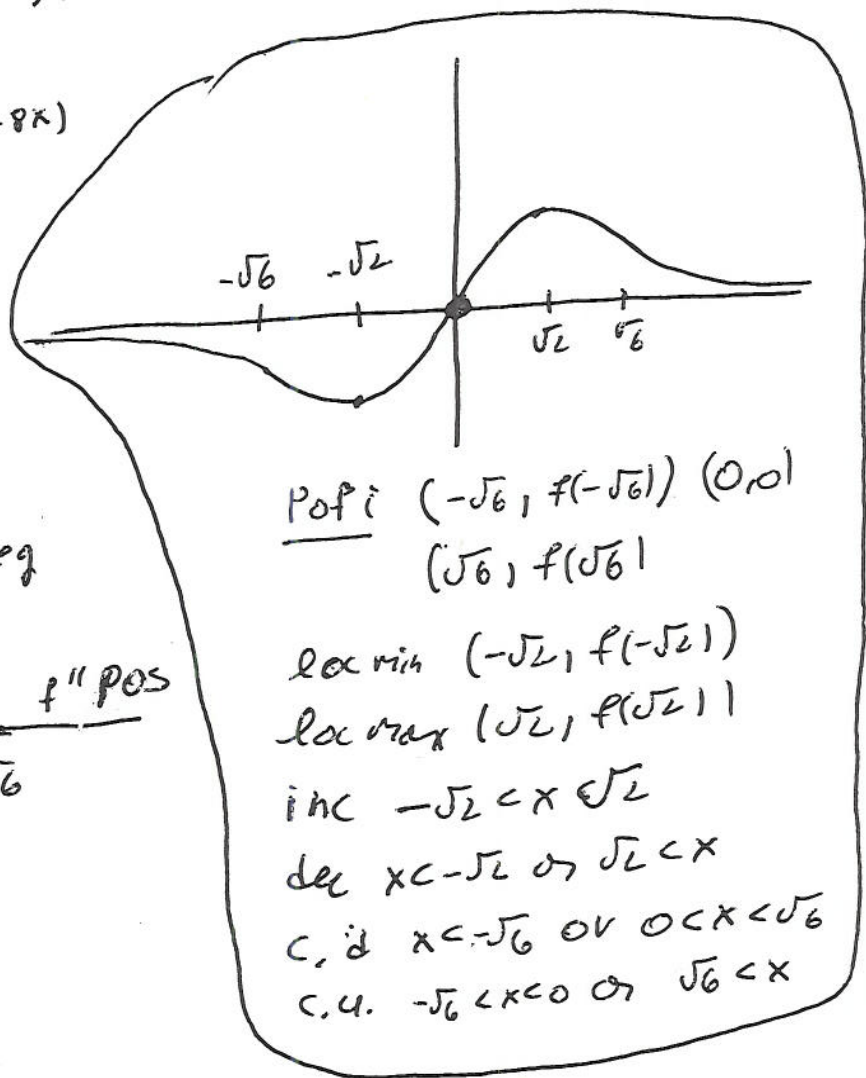 8x)
-√6 -√2
√2 √6
P of i (-√6, f(-√6)) (0,0)
(√6, f(√6)
eg
loc min (-√2, f(-√2))
f" pos
loc max (√2, f(√2))
6
inc -√2 < x < √2
dec x < -√2 or √2 < x
c.d x < -√6 or 0 < x < √6
c.u. -√6 < x < 0 or √6 < x